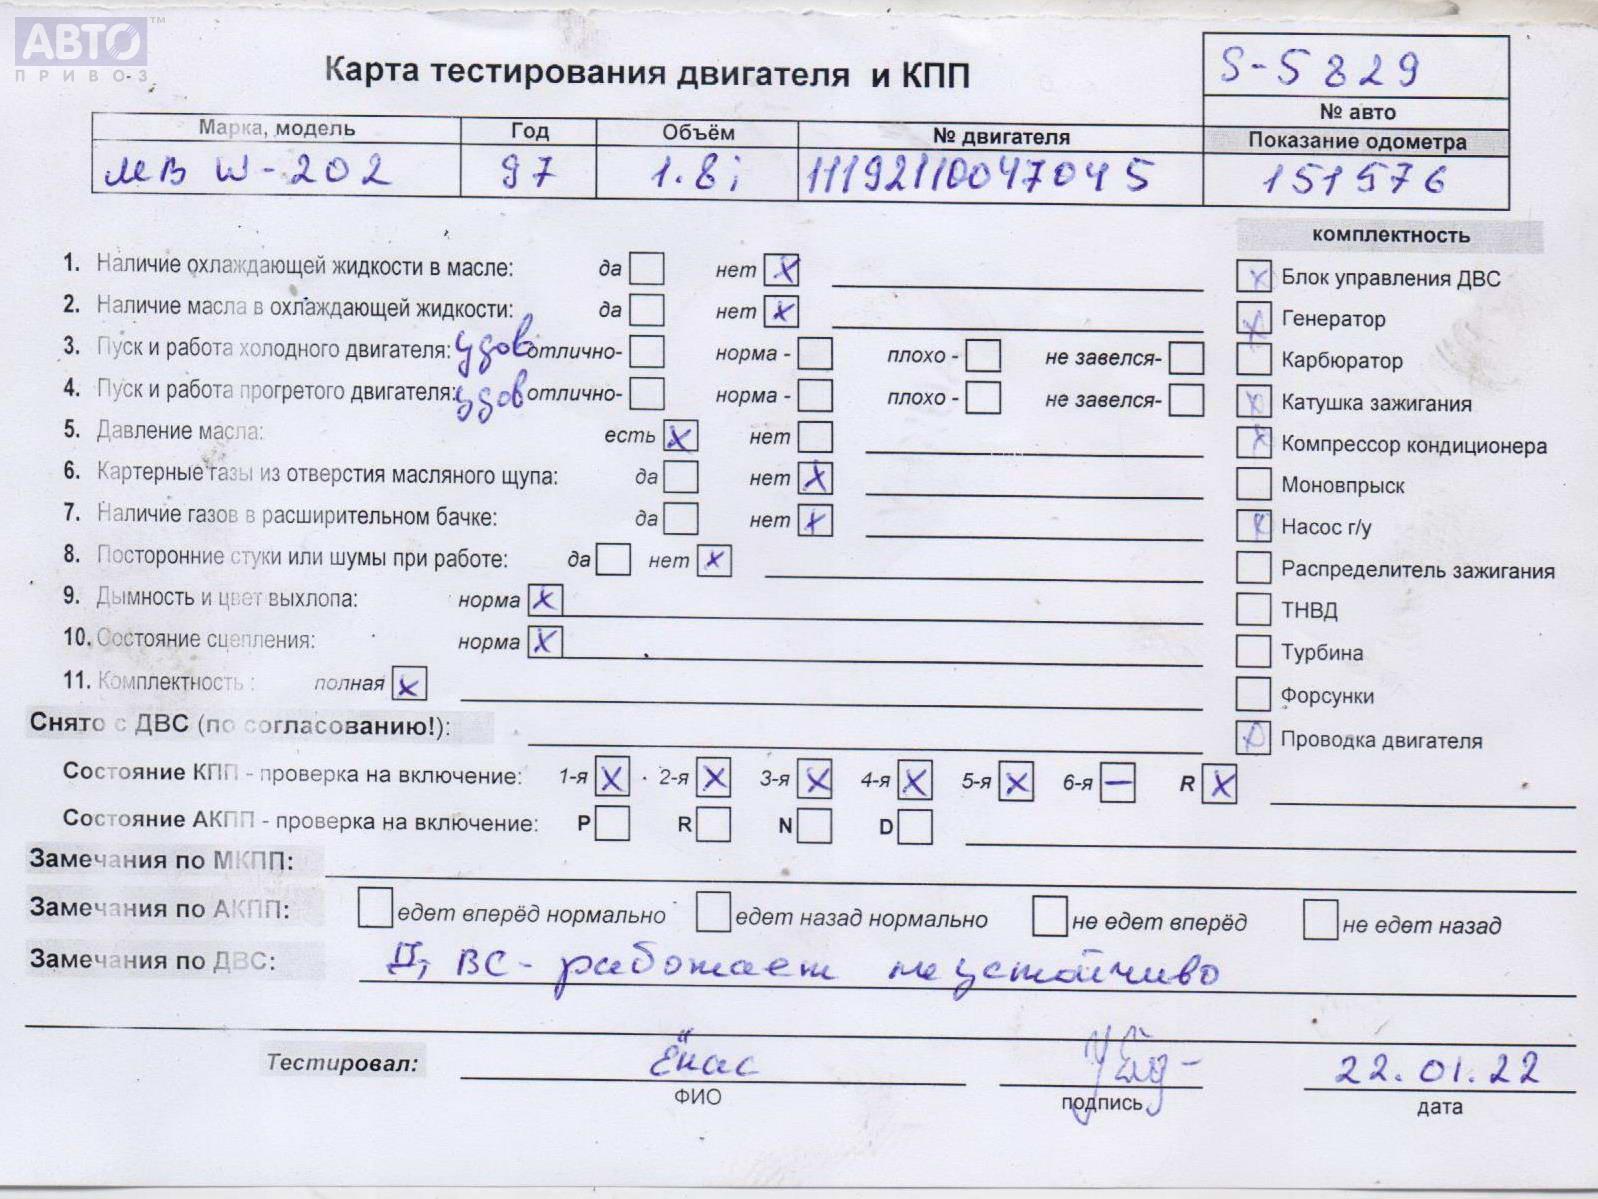 АВТО™
ПРИВОЗ
Карта тестирования двигателя и КПП
S-5829
№ авто
Марка, модель Год Объём № двигателя Показание одометра
МВ W-202 97 1.8i 11192110047045 151576
комплектность
1. Наличие охлаждающей жидкости в масле: да нет X
2. Наличие масла в охлаждающей жидкости: да нет X
3. Пуск и работа холодного двигателя: удов отлично- норма - плохо - не завелся-
4. Пуск и работа прогретого двигателя: удов отлично- норма - плохо - не завелся-
5. Давление масла: есть X нет
6. Картерные газы из отверстия масляного щупа: да нет X
7. Наличие газов в расширительном бачке: да нет X
8. Посторонние стуки или шумы при работе: да нет X
9. Дымность и цвет выхлопа: норма X
10. Состояние сцепления: норма X
11. Комплектность : полная X
X Блок управления ДВС
X Генератор
Карбюратор
X Катушка зажигания
X Компрессор кондиционера
Моновпрыск
X Насос г/у
Распределитель зажигания
ТНВД
Турбина
Форсунки
X Проводка двигателя
Снято с ДВС (по согласованию!):
Состояние КПП - проверка на включение: 1-я X 2-я X 3-я X 4-я X 5-я X 6-я — R X
Состояние АКПП - проверка на включение: P R N D
Замечания по МКПП:
Замечания по АКПП: едет вперёд нормально едет назад нормально не едет вперёд не едет назад
Замечания по ДВС: ДВС - работает неустойчиво
Тестировал: 22.01.22
ФИО подпись дата